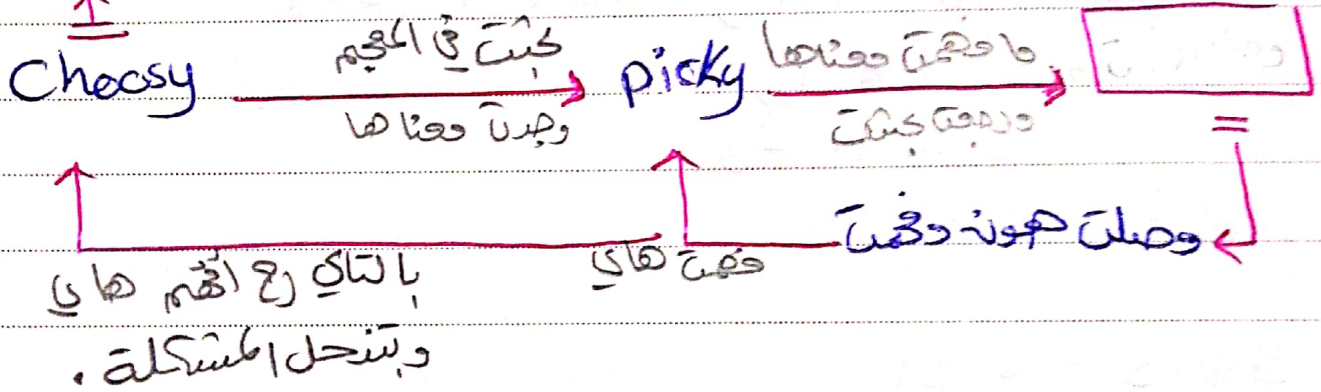 Choosy بحثت في المعجم picky ما فهمت معناها
وجدت معناها ورجعت بحثت
=
وصلت هون وفهمت
فهمت هاي
بالتالي رح أفهم هاي
وبتنحل المشكلة .